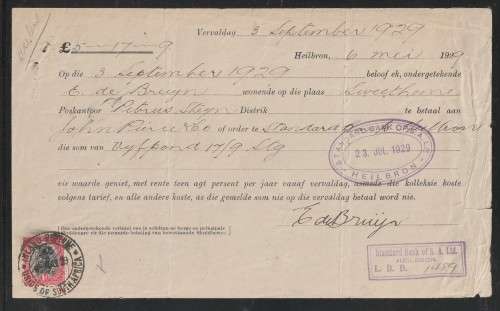 Vervaldag 3 September 1929
£5-17-9 Heilbron, 6 mei 1929
Op die 3 September 1929 beloof ek, ondergetekende
E. de Bruyn wonende op die plaas Sweethome
Poskantoor Petrus Steyn Distrik te betaal aan
John & Co of order te Standard Bank Heilbron
die som van Vyfpond 17/9 Stg
vir waarde geniet, met rente teen agt persent per jaar vanaf vervaldag, asmede die kolleksie koste
volgens tarief, en alle andere koste, as die gemelde som nie op die vervaldag betaal word nie.
E de Bruyn
STANDARD BANK OF S.A. LTD
23 JUL 1929
HEILBRON
Standard Bank of S. A. Ltd.
HEILBRON
L. B. D. 1489
INKOMSTE
UNION OF SOUTH AFRICA